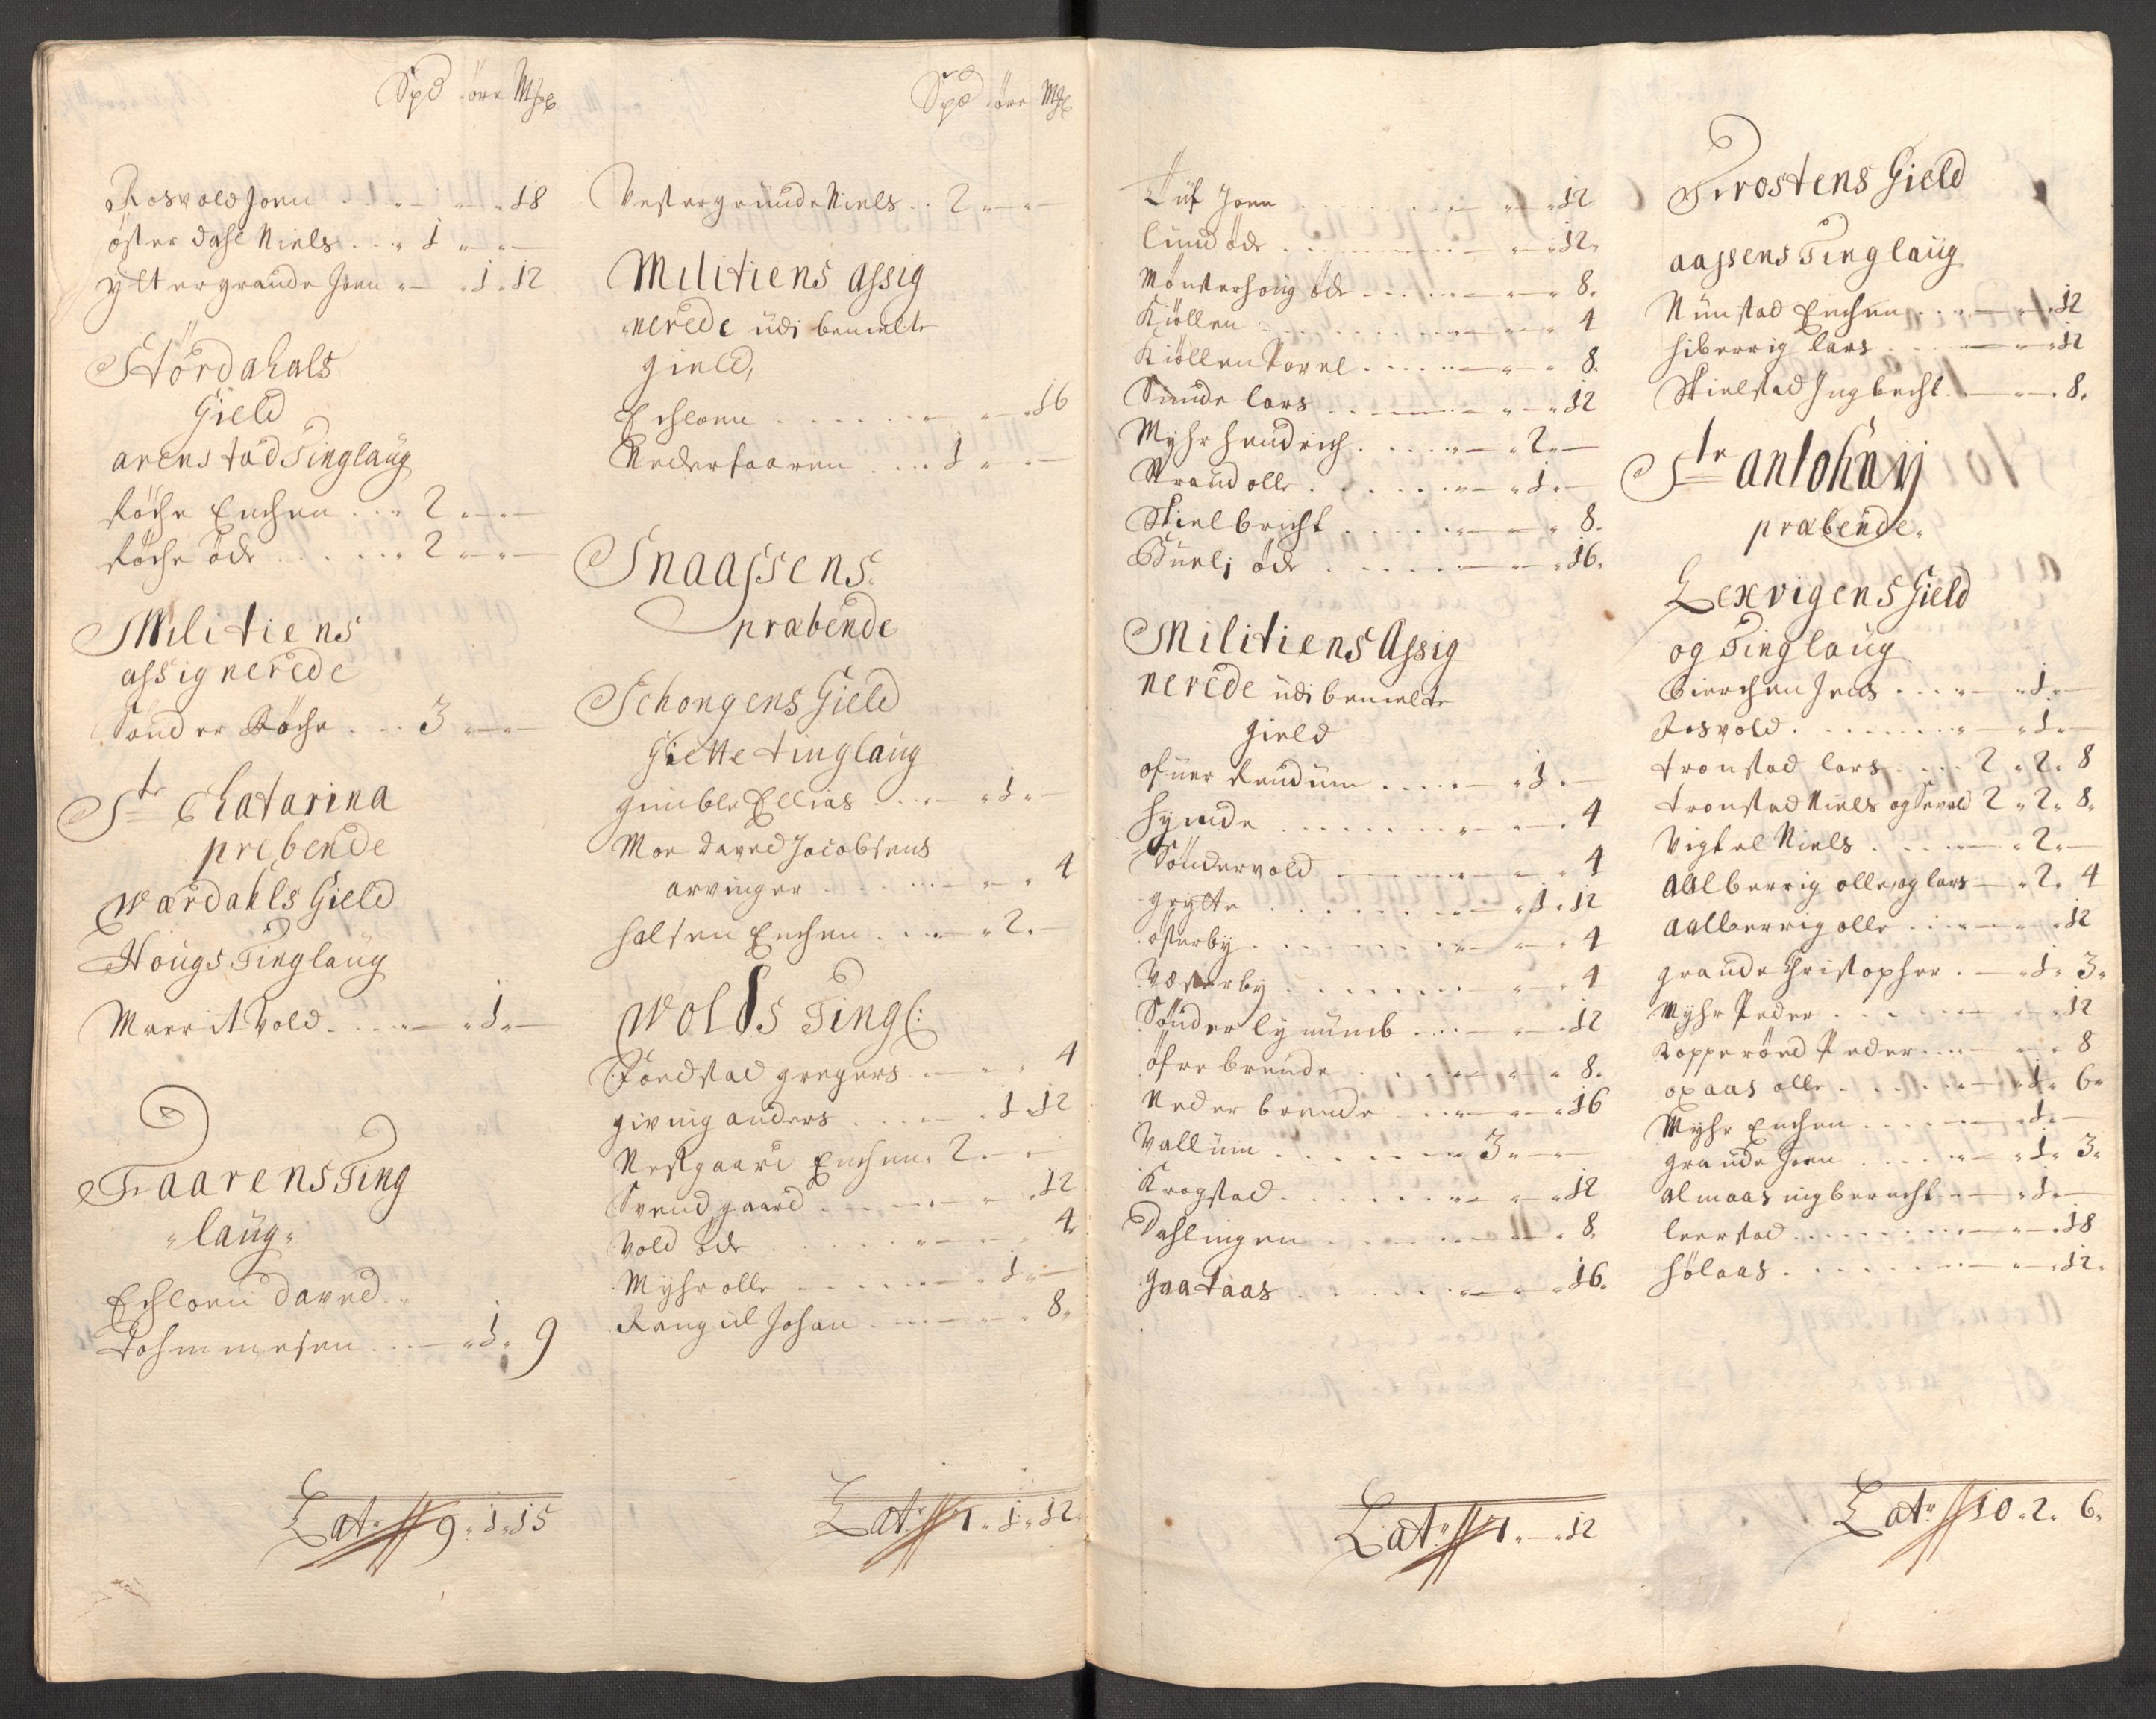 Spd öre Mrx
Rosvold Joen 18
öster dahl Niels 1
ytter grande Joen 1 12
Stördahals
Gield
arenstad Tinglaug
Röche Enchen 2
Röche öde 2
Militiens
assignerede
Sønder Röche 3
Ste Chatarina
prebende
Wærdahls Gield
Hougs Tinglaug
Marrit Vold 1
Faarens Ting
laug
Echloen David
Tohmmesen 1 9
Lat 9 1 15
Spd öre Mrx
Vestergrunde Niels 2
Militiens assig
nerede udi bemelte
gield,
Echloen 16
Nederfaaren 1
Snaassens
præbende
Schongens Gield
Giette tinglaug
gimble Ellias 1
Moe David Jacobsens
arvinger 4
halsen Enchen 2
Wolds Tingl:
Fordstad gregers 4
giving anders 1 12
Nestgaard Enchen 2
Svendgaard 12
Vold öde 4
Myhr olle 1
Rangul Johan 8
Lat 7 1 12
Tuf Joen 12
lund öde 12
Mönsterhoug öde 8
Kiöllen 4
Kiöllen Povel 8
Sunde lars 12
Myhr hendrich 2
Strand olle 1
Skielbricht 8
Buelj öde 16
Militiens Assig
nerede udi bemelte
gield
ofuer Rendum 1
hymde 4
Söndervold 4
grytte 1 12
österby 4
Vesterby 4
Sönder lynumb 12
öfre brunde 8
Neder brunde 16
Vallum 3
Krogstad 12
Dahlingen 8
Gaataas 16
Lat 7 12
Frostens Gield
aassens Tinglaug
Nunstad Enchen 12
hiberrig lars 12
Skielstad Ingbricht 8
Ste antohnij
præbende
Lexvigens Gield
og Tinglaug
Bierchen Jens 1
Rosvold 1
tronstad lars 2 2 8
tronstad Niels og Sevald 2 2 8
Vigtel Niels 2
Aalberrig olle, og lars 2 4
Aalberrig olle 12
grande Christopher 1 3
Myhr Peder 12
Kopperöed Peder 8
opaas olle 1 6
Myhr Enchen 1
grande Joen 1 3
almaas ingebricht 1
leerstad 18
hölaas 12
Lat 10 2 6